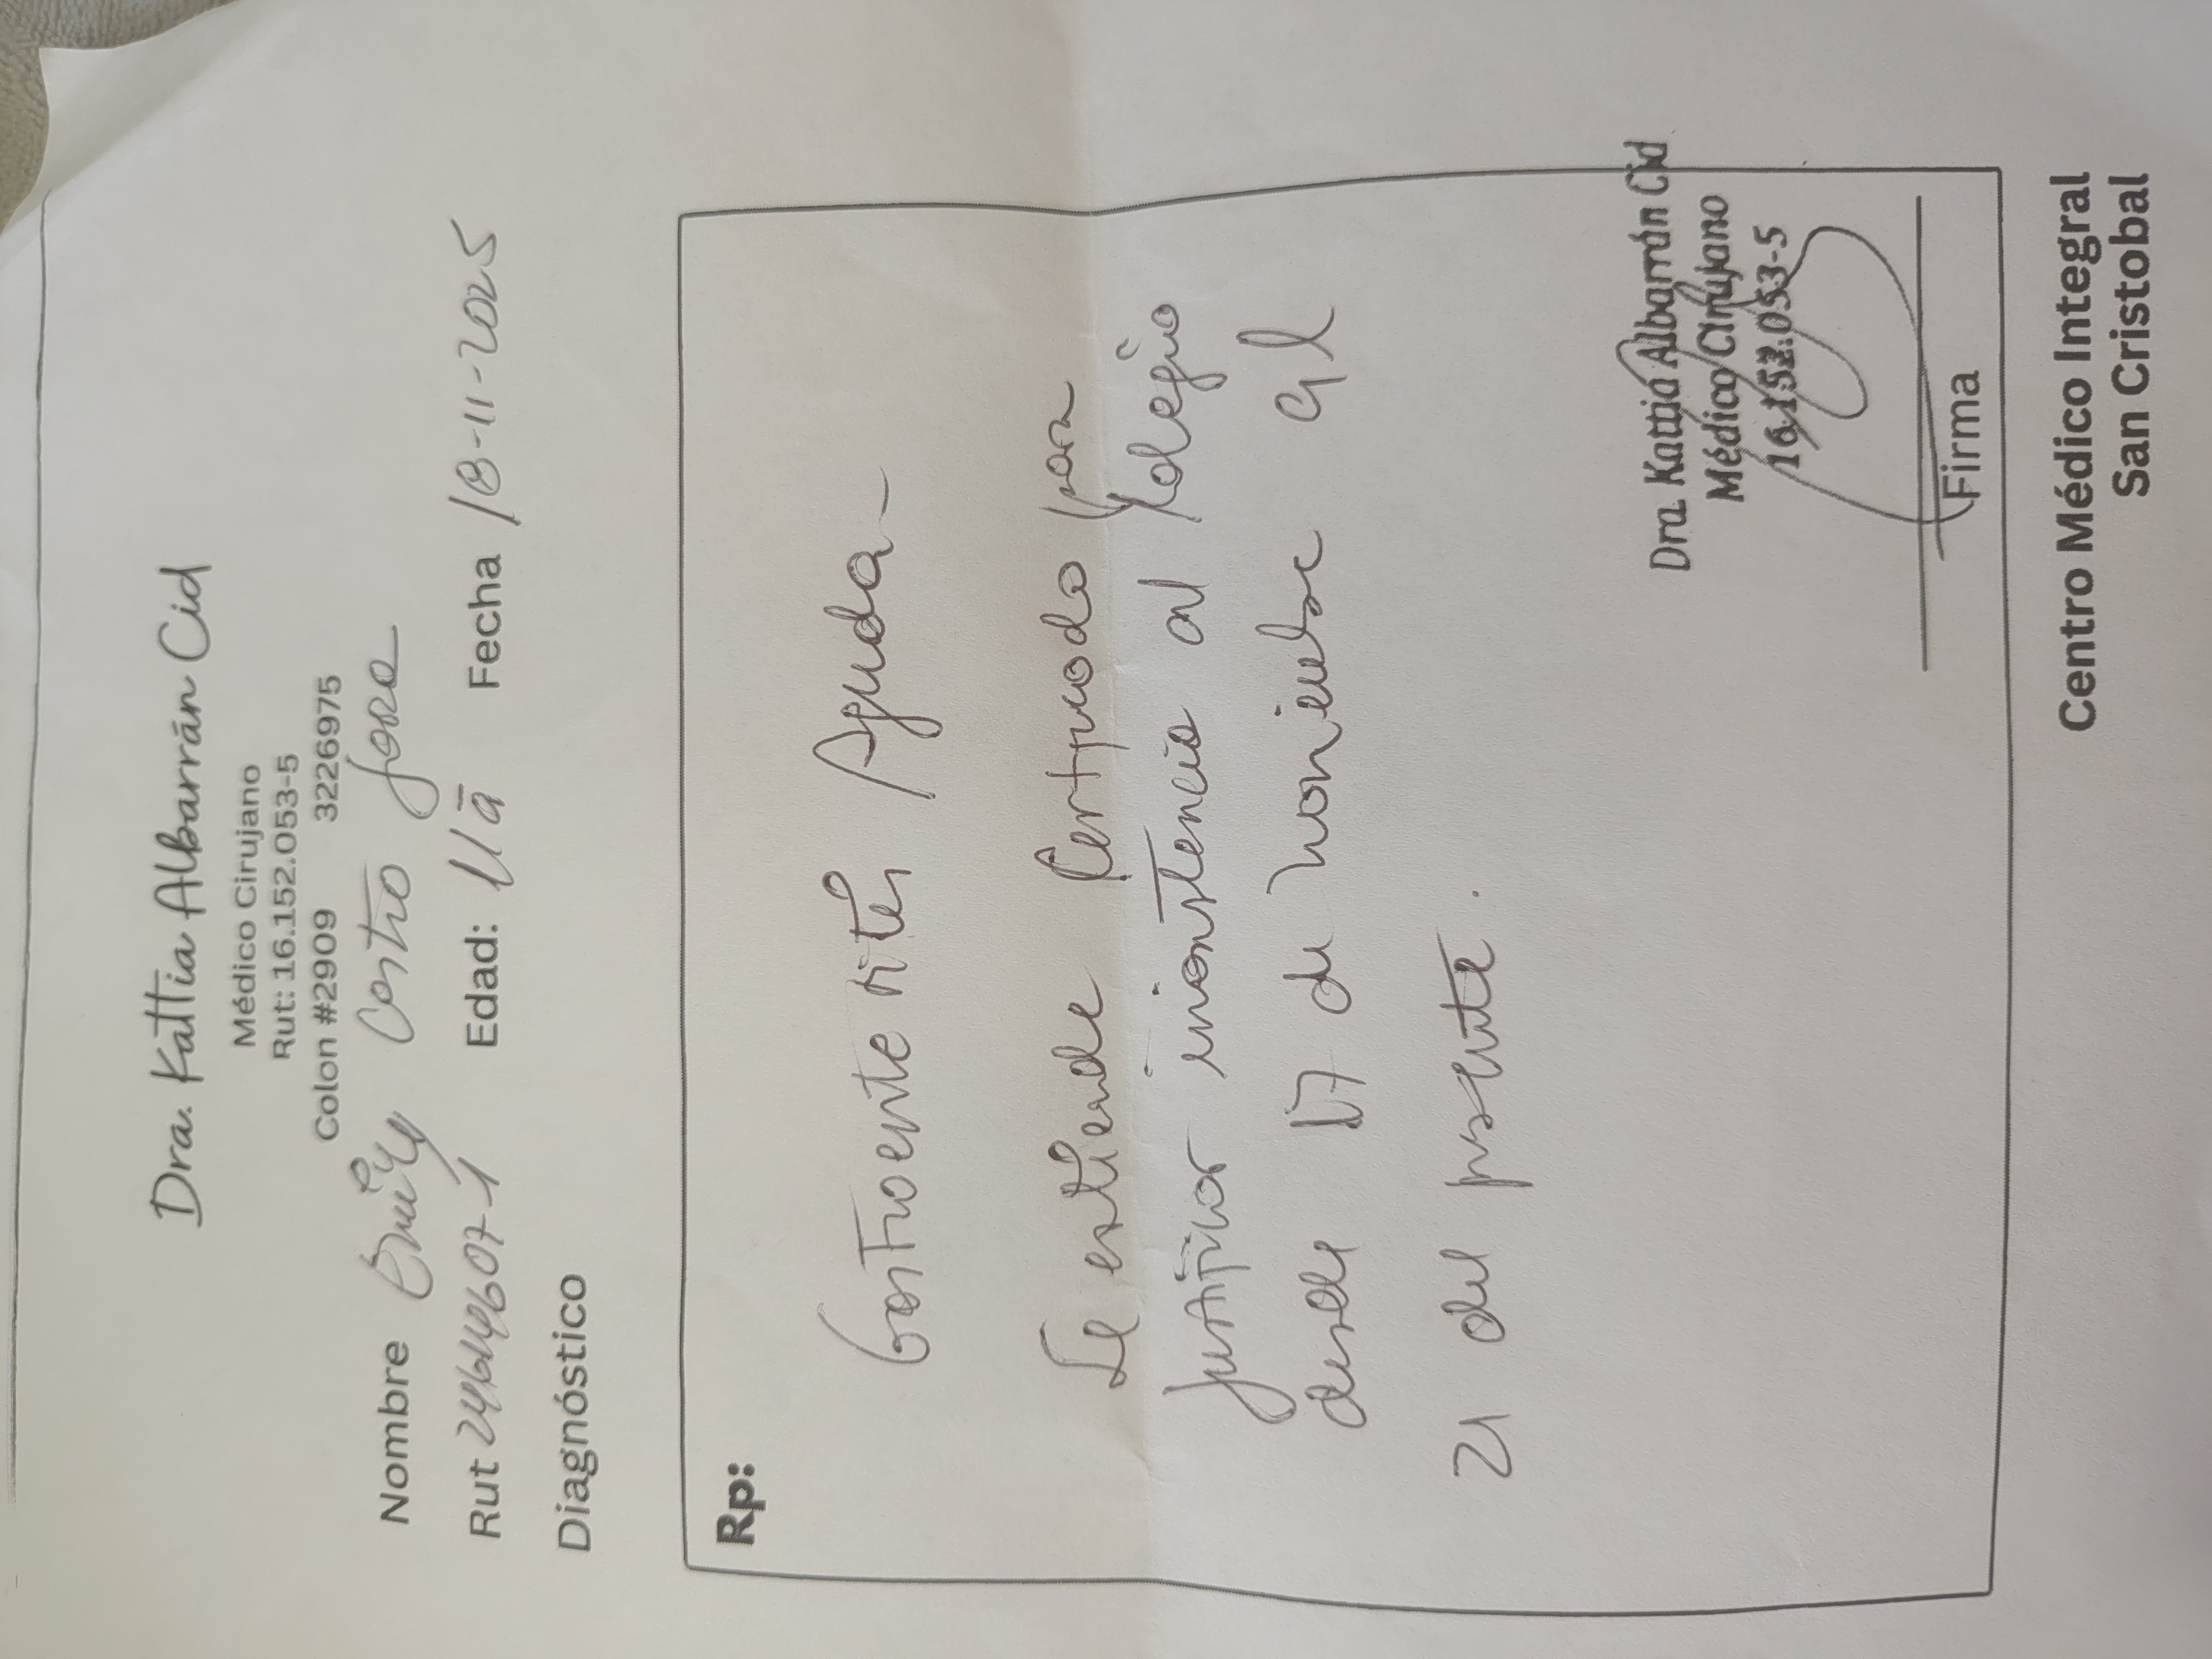 Dra. Kattia Albarrán Cid
Médico Cirujano
Rut: 16.152.053-5
Colon #2909 3226975
Nombre Emily Castro Jara
Rut 24614607-1 Edad: 11ã Fecha 18-11-2025
Diagnóstico
Rp:
Gastroenteritis Aguda
Se extiende Certificado para
justificar inasistencia al Colegio
desde 17 de noviembre al
21 del presente.
Dra. Kattia Albarrán Cid
Médico Cirujano
16.152.053-5
Firma
Centro Médico Integral
San Cristobal